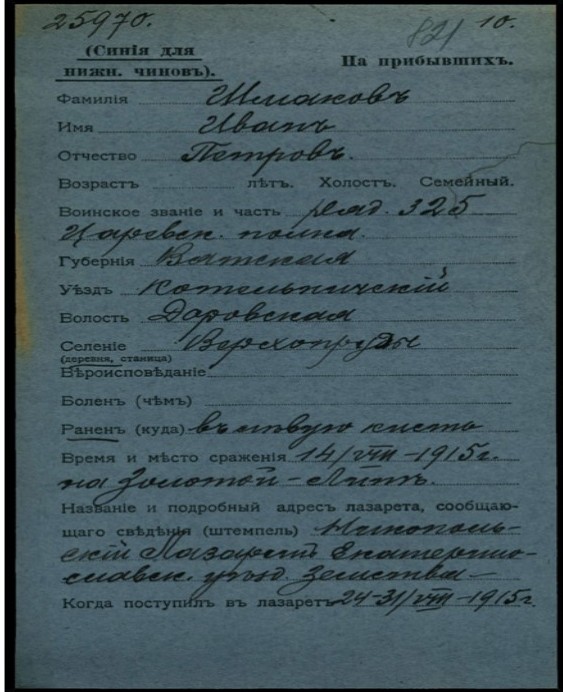 25970. 821 10.
(Синія для
нижн. чиновъ).
На прибывшихъ.
Фамилія Шмаковъ
Имя Иванъ
Отчество Петровъ.
Возрастъ лѣтъ. Холостъ. Семейный.
Воинское званіе и часть ряд. 325
Царевск. полка.
Губернія Вятская
Уѣздъ Котельничскій
Волость Даровская
Селеніе Верхопруды
(деревня, станица)
Вѣроисповѣданіе
Боленъ (чѣмъ)
Раненъ (куда) въ лѣвую кисть
Время и мѣсто сраженія 14/VIII-1915г.
на Золотой-Липѣ.
Названіе и подробный адресъ лазарета, сообщаю-
щаго свѣдѣнія (штемпель) Никополь-
скій Лазаретъ Екатерино-
славск. уѣзд. Земства
Когда поступилъ въ лазаретъ 24-31/VIII-1915г.